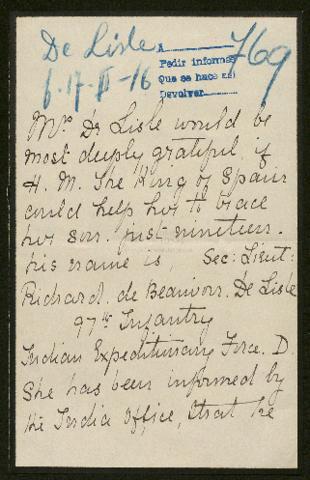 De Lisle
769
6.17-II-16
A
Pedir informes
Que se hace así
Devolver
Mrs De Lisle would be
most deeply grateful if
H. M. The King of Spain
could help her to trace
her son. just nineteen.
his name is, Sec: Lieut:
Richard. de Beauvoir. De Lisle
97th Infantry
Indian Expeditionary Force. D.
She has been informed by
the India Office, that he